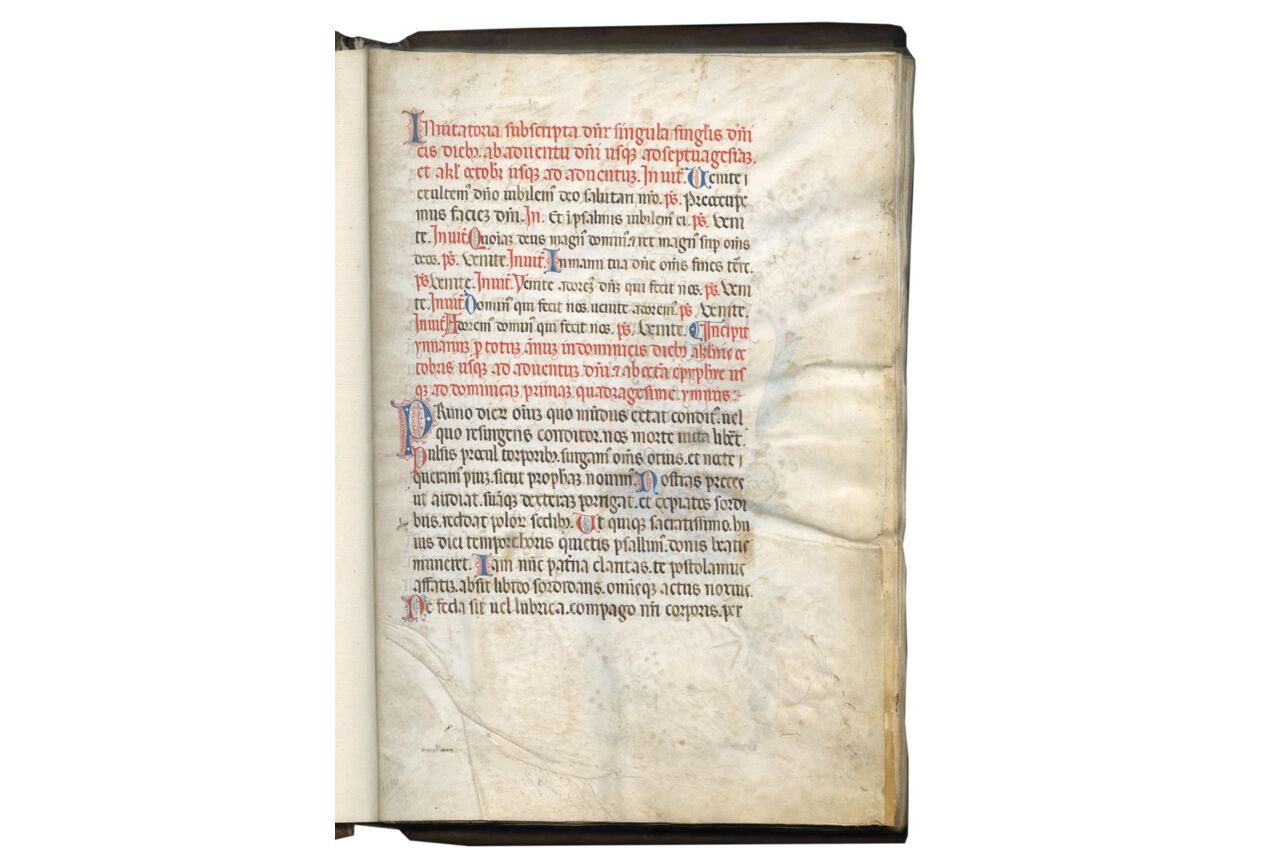 Inuitatoria subscripta dn̄r singula singlis dm̄i
cis dieb; ab aduentu dn̄i usq; ad septuagesiaz.
et a kl' octobr̄ usq; ad aduentuz. Inuit̄. Uenite ı
exultem᷒ dn̄o iubilem᷒ deo salutari nr̄o. ps̄. Preoccupe
mus faciez dn̄i. In. Et ī psalmis iubilem᷒ ei. ps̄. Veni
te. Inuit̄. Quoniaz deus magn᷒ domin᷒ ⁊ rex magn᷒ sup om̄s
deos. ps̄. Venite. Inuit̄. In manu tua dn̄e om̄s fines tr̄e.
ps̄. Venite. Inuit̄. Venite adorem᷒ dn̄z qui fecit nos. ps̄. Veni
te. Inuit̄. Domin᷒ qui fecit nos. uenite adorem᷒. ps̄. Venite.
Inuit̄. Adorem᷒ domin᷒ qui fecit nos. ps̄. Venite. Incipit
ymnarius p totuz annuz in dominicis dieb; a kl'nis oc
tobris usq; ad aduentuz dn̄i ⁊ ab octa epyphie us
q; ad dominicaz primaz quadragesime. ymnus.
PRimo dierz om̄iuz quo mūdus extat condit᷒. uel
quo resurgens conditor. nos morte uicta libet̄.
Pulsis procul torporib;. surgam᷒ om̄s otius. et nocte ı
queram᷒ piuz. sicut prophaz nouim᷒. Nostras preces
ut audiat. suāq; dexteraz porrigat. et expiatos sordi
bus. reddat polorz sedib;. Ut quiq; sacratissimo. hu
ius diei tempore. horis quietis psallim᷒. donis beatis
muneret. Iam nūc pat̄na claritas. te postolamus
affatiz. absit libido sordidans. omīsq; actus noxius.
Ne feda sit uel lubrica. compago nr̄i corporis. per